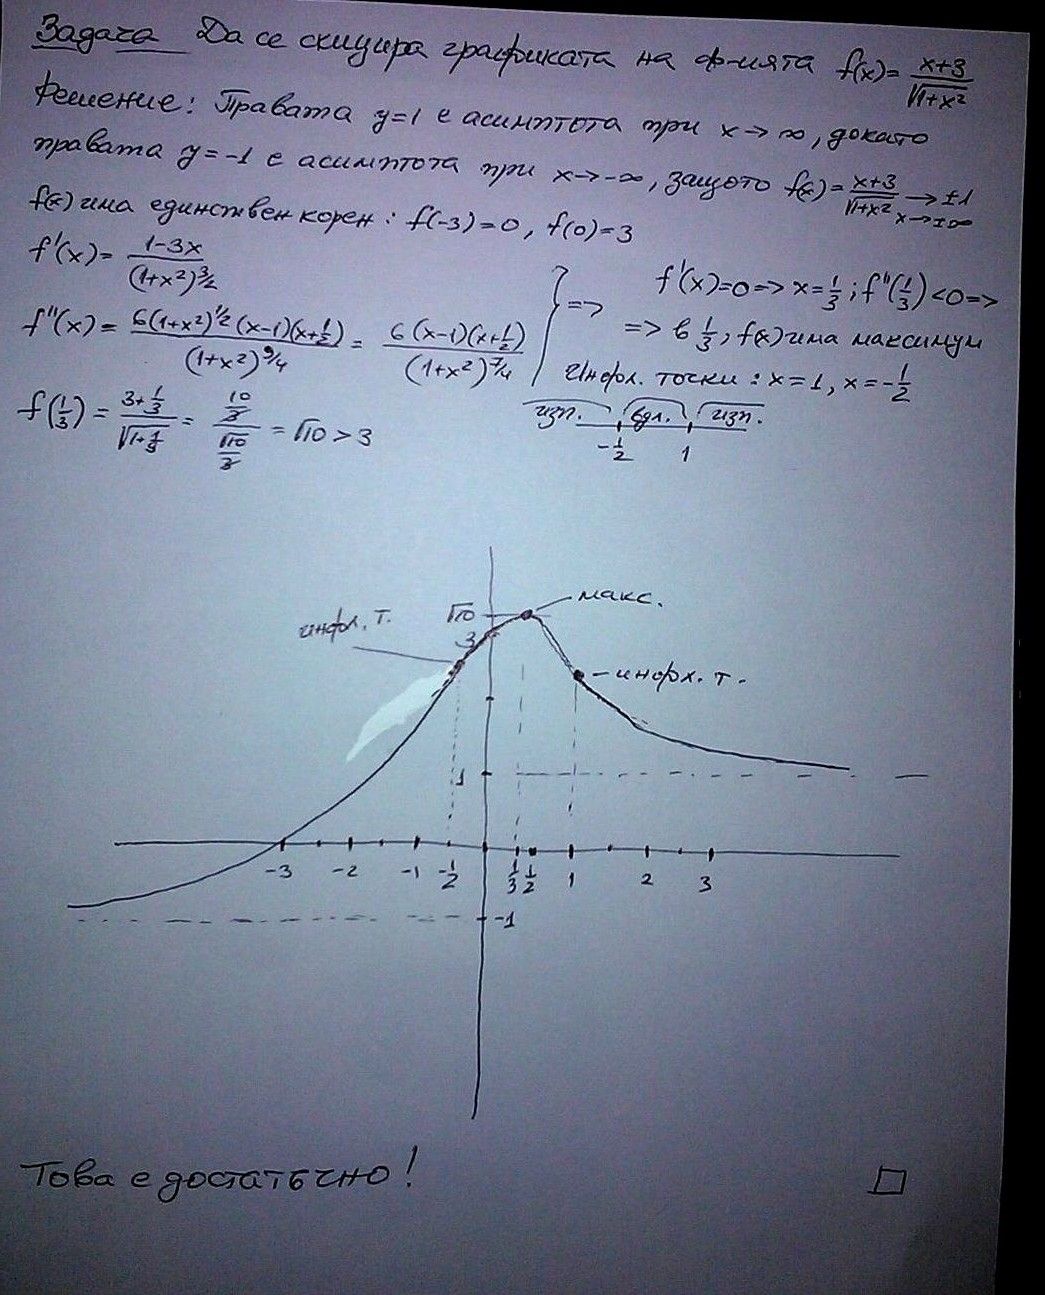 Задача Да се скицира графиката на ф-ията f(x)= (x+3)/√(1+x²)
Решение: Правата y=1 е асимптота при x→∞, докато
правата y=-1 е асимптота при x→-∞, защото f(x)= (x+3)/√(1+x²) → ±1 x→±∞
f(x) има единствен корен: f(-3)=0, f(0)=3
f'(x)= (1-3x)/(1+x²)^(3/2)
f''(x)= 6(1+x²)^(1/2)(x-1)(x+1/2)/(1+x²)^(9/4) = 6(x-1)(x+1/2)/(1+x²)^(7/4)
f(1/3)= (3+1/3)/√(1+1/9) = (10/3)/(√10/3) = √10 > 3
} => f'(x)=0 => x=1/3; f''(1/3)<0 =>
=> в 1/3, f(x) има максимум
Инфл. точки: x=1, x=-1/2
изп. вдл. изп.
-1/2 1
макс.
инфл. т. √10
3
инфл. т.
1
-3 -2 -1 -1/2 1/3 1/2 1 2 3
-1
Това е достатъчно! □